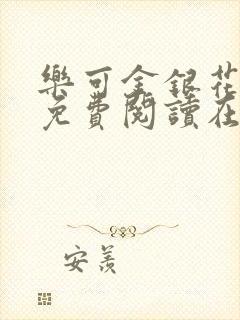 樂可金銀花
免費閱讀在
安羨